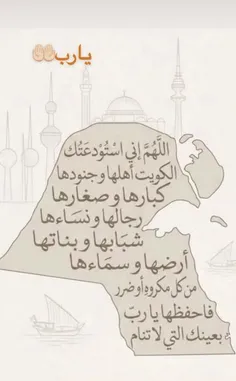 يارب🤲🏻
اللَّهُمَّ إني اسْتَوْدَعْتُك
الكويت أهلها وجنودها
كبارها وصغارها
رجالها ونسَاءها
شبَابها وبناتها
أرضها وسمَاءها
من كل مكروهٍ أو ضرر
فاحفظها ياربّ
بعينك التي لا تنام